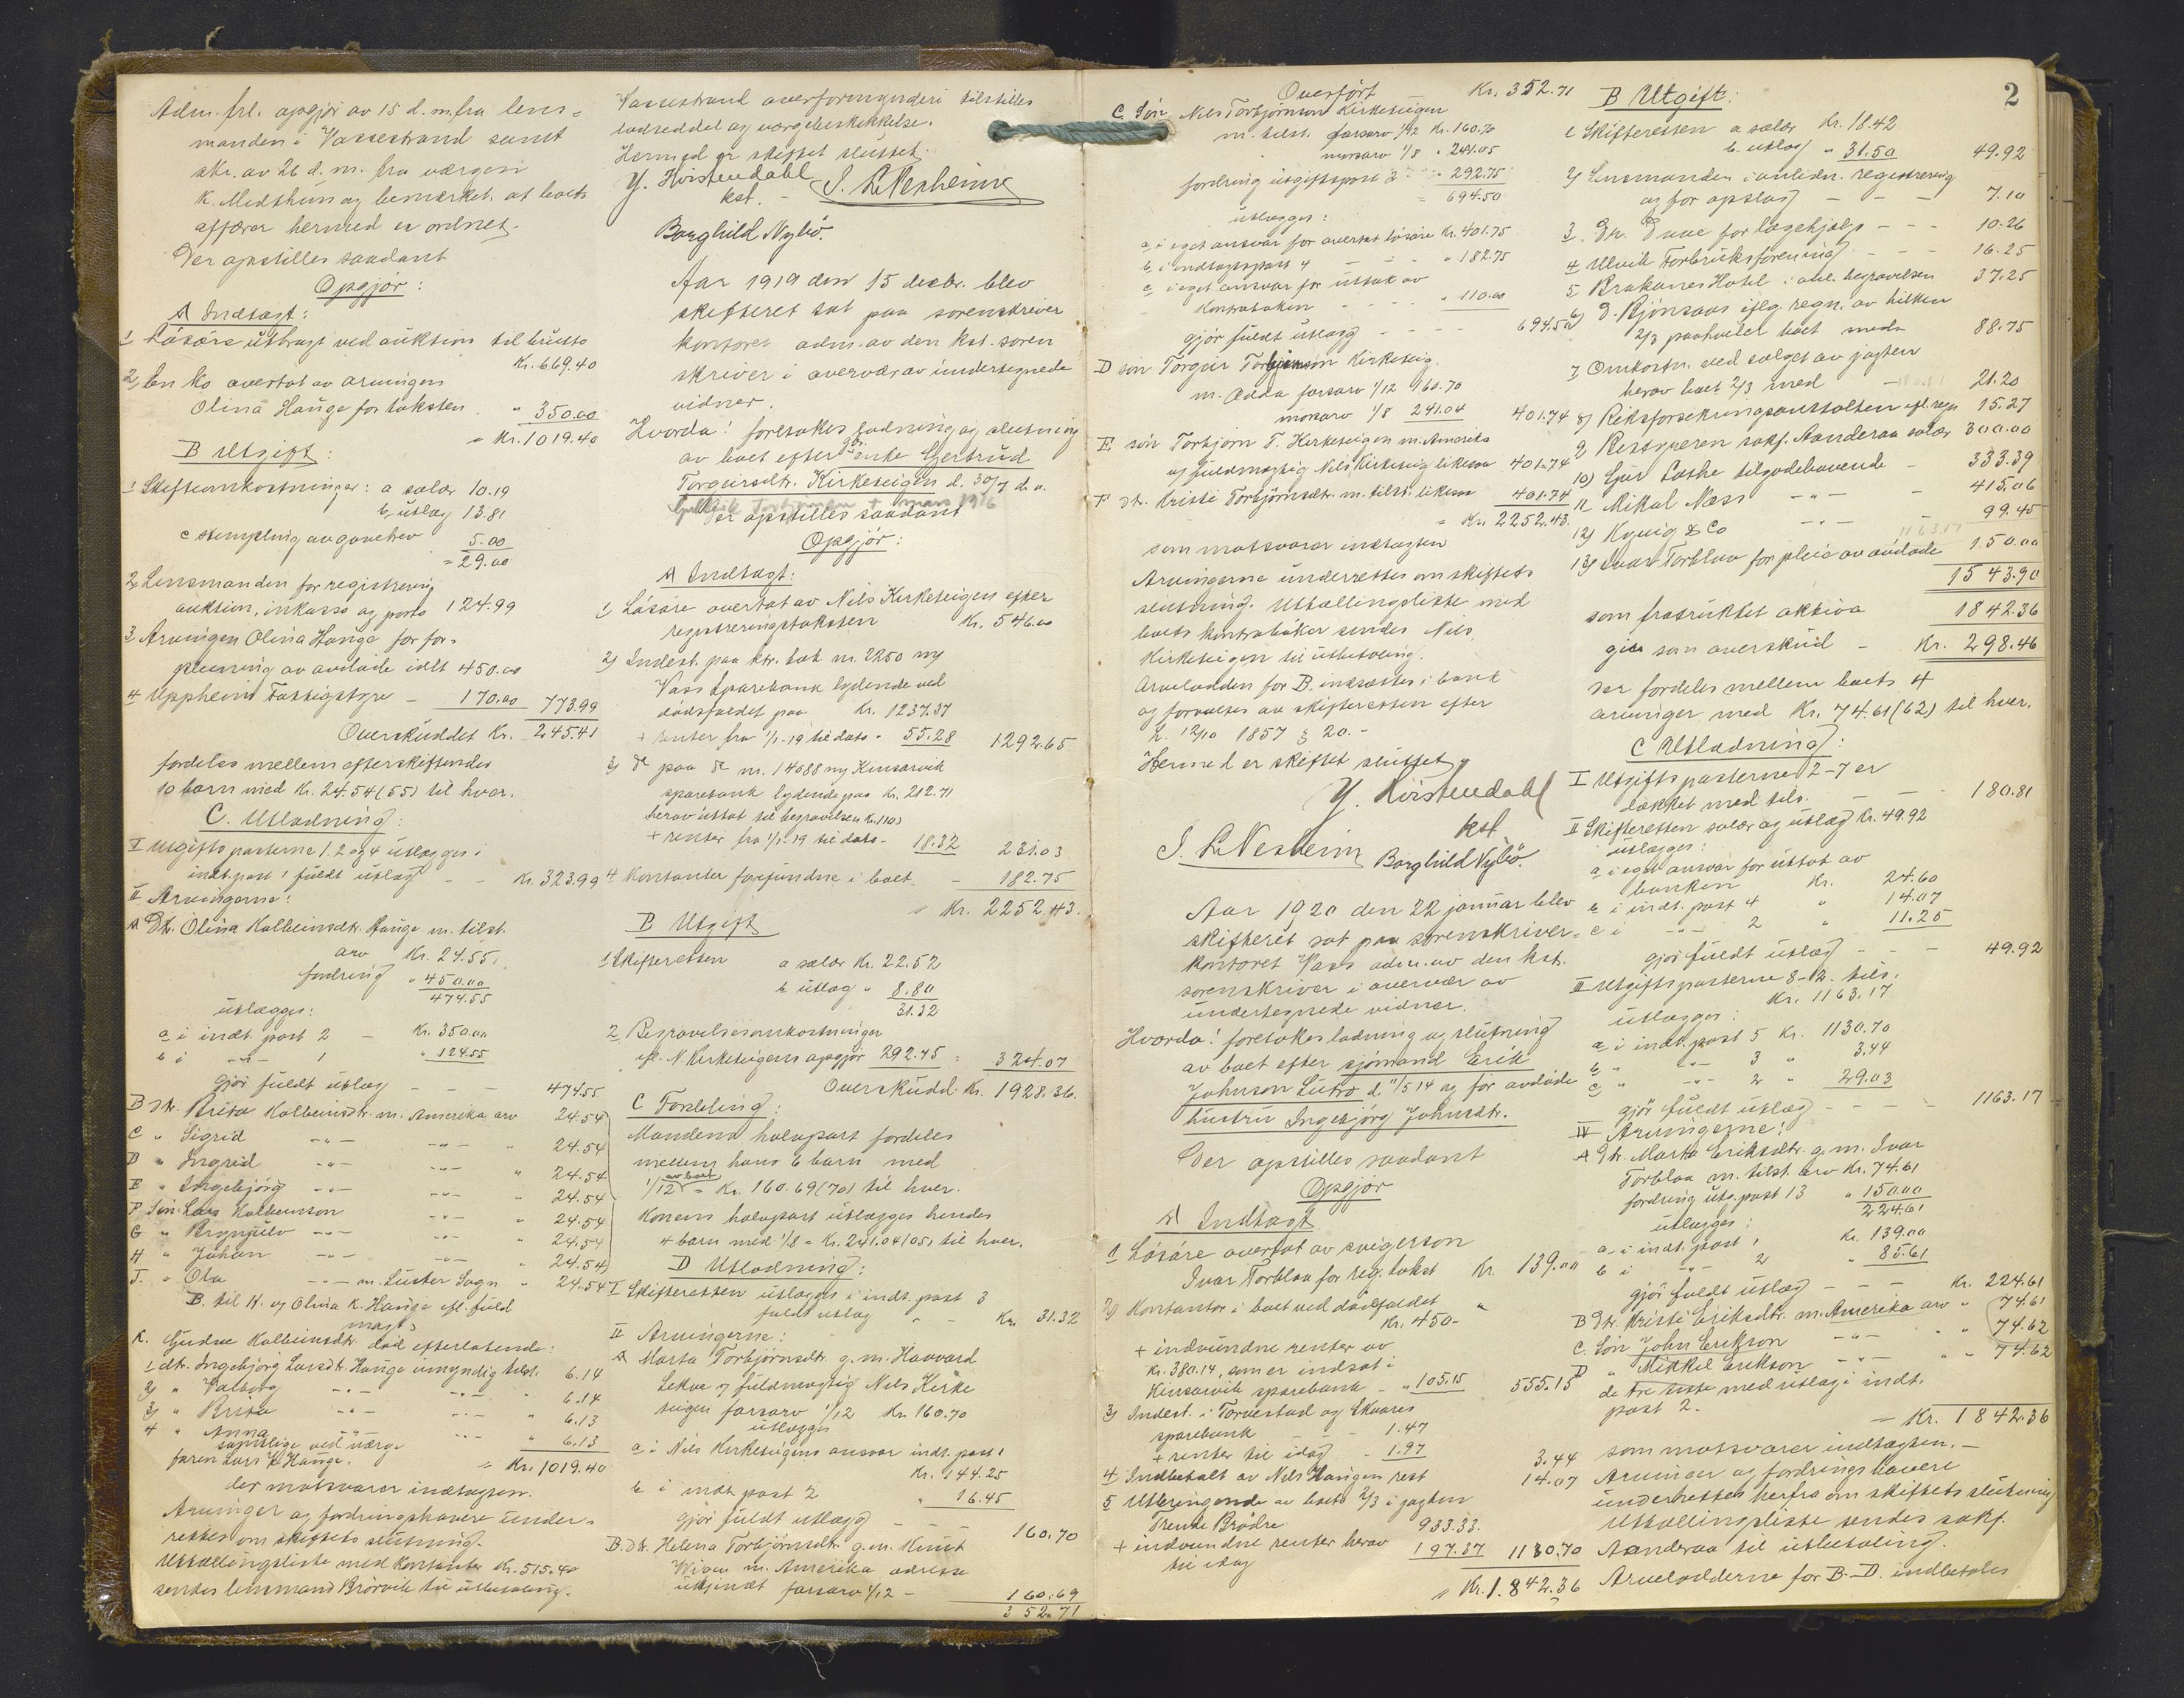 Adm. frl. opgjør av 15 d. m. fra lens-
manden i Vossestrand samt
skr. av 26 d. m. fra værgen
K. Medthun og bemerket at boets
affærer hermed er ordnet.
Der opstilles saadant
Opgjør:
A Indtægt:
1 Løsøre utbragt ved auktion til brutto
Kr. 669.40
2 En ko overtat av arvingen
Olina Hauge for taksten " 350.00
= Kr. 1019.40
B Utgift:
1 Skifteomkostninger: a salær 10.19
b utlæg 13.81
c stempling av gavebrev 5.00
= 29.00
2 Lensmanden for registrering
auktion, inkasso og porto 124.99
3 Arvingen Olina Hauge for for-
pleining av avdøde idlt 450.00
4 Uppheim Fattigstyre - 170.00 773.99
Overskuddet Kr. 245.41
fordeles mellem efterskiftendes
10 barn med Kr. 24.54 (55) til hver.
C. Utlodning:
I Utgiftsposterne 1. 2 og 4 utlægges i
indt. post 1 fuldt utlæg - - Kr. 323.99
II Arvingerne:
A Dtr. Olina Kolbeinsdtr. Hauge m. tilst.
arv Kr. 24.55
fordring " 450.00
474.55
utlægges:
a i indt. post 2 - Kr. 350.00
b i -"- 1 " 124.55
gjør fuldt utlæg - - - 474.55
B Dtr. Brita Kolbeinsdtr. m. Amerika arv 24.54
C " Sigrid -"- -"- " 24.54
D " Ingrid -"- -"- " 24.54
E " Ingebjørg -"- -"- " 24.54
F Søn Lars Kolbeinson -"- " 24.54
G " Brynjulv -"- -"- " 24.54
H " Johan -"- -"- " 24.54
J. " Ola -"- m. Luster Sogn " 24.54
B. til H. og Olina K. Hauge efl. fuld
magt
K. Gudve Kolbeinsdtr. død efterlatende:
1 dtr. Ingebjørg Larsdtr. Hauge umyndig tilst. 6.14
2) " Valborg -"- -"- " 6.14
3) " Brita -"- -"- " 6.13
4 " Anna -"- -"- " 6.13
samtlige ved værge
faren Lars K. Hauge.
= Kr. 1019.40
der motsvarer indtægten.
Arvinger og fordringshavere under-
rettes om skiftets slutning.
Utstællingsliste med kontanter Kr. 515.40
sendes lensmand Brørvik til utbetaling.
Vossestrand overformynderi tilstilles
lodseddel og værgebeskikkelse.
Hermed er skiftet sluttet.
Y. Hoistendahl
kst. - J. L. Nesheim
Borghild Nybø.
Aar 1919 den 15 decbr. blev
skifteret sat paa sorenskriver
kontoret adm. av den kst. soren
skriver i overvær av undertegnede
vidner.
Hvorda! foretokes lodning og slutning
av boet efter gbr. enke Gertrud
Torgeirsdtr. Kirketeigen d. 30/7 d. a.
Der opstilles saadant
Opgjør:
A Indtægt:
1 Løsøre overtat av Nils Kirketeigen efter
registreringstaksten Kr. 546.00
2) Indest. paa ktr. bok nr. 2250 ny
Voss Sparebank lydende ved
dødsfaldet paa Kr. 1237.37
+ renter fra 1/1-19 til dato " 55.28 1292.65
3) do paa do nr. 14088 ny Kinsarvik
sparebank lydende paa Kr. 212.71
herav uttat til begravelsen kr. 110)
+ renter fra 1/1-19 til dato - 18.32 231.03
4 Kontanter forefundne i boet - 182.75
" Kr. 2252.43.
B Utgift
1 Skifteretten a salær Kr. 22.52
b utlæg " 8.80
31.32
2 Begravelsesomkostninger
efl. N. Kirketeigens opgjør 292.75 = 324.07
Overskudd Kr. 1928.36.
C Fordeling:
Mandens halvpart fordeles
mellem hans 6 barn med
1/12 av boet = Kr. 160.69 (70) til hver.
Konens halvpart utlægges hendes
4 barn med 1/8 = Kr. 241.04 (05) til hver.
D Utlodning:
I Skifteretten utlægges i indt. post 3
fuldt utlæg " - Kr. 31.32
II Arvingerne:
A Marta Torbjørnsdtr. g. m. Haavard
Lekve og fuldmægtig Nils Kirke
teigen farsarv 1/12 Kr. 160.70
utlægges
a i Nils Kirketeigens ansvar indt. post 1
Kr. 144.25
b i indt. post 2 " 16.45
gjør fuldt utlægg - - - 160.70
B. Dtr. Helena Torbjørnsdtr. g. m. Knut
m. Amerika adresse
ukjendt farsarv 1/12 - 160.69
352.71
2
Overført Kr. 352.71
C. Søn Nils Torbjørnson Kirketeigen
m. tilst. farsarv 1/12 Kr. 160.70
morsarv 1/8 " 241.05
fordring utgiftspost 2 " 292.75
= 694.50
utlægges:
a i eget ansvar for overtat løsøre Kr. 401.75
b i indtægtspost 4 - - " 182.75
c i eget ansvar for uttak av
Kontraboken - - - " 110.00
gjør fuldt utlægg - - - 694.50
D søn Torgeir Torbjørnson Kirketeig.
m. Odda farsarv 1/12 160.70
morsarv 1/8 241.04 401.74
E søn Torbjørn T. Kirketeigen m. Amerika
og fuldmægtig Nils Kirketeig likesaa 401.74
F Dtr. Kristi Torbjørnsdtr. m. tilst. likesaa 401.74
= Kr. 2252.43.
som motsvarer indtægten
Arvingerne underrettes om skiftets
slutning. Utstællingsliste med
boets kontrabøker sendes Nils
Kirketeigen til utbetaling.
Arvelodden for B. indsættes i bank
og forvaltes av skifteretten efter
L. 12/10 1857 § 20. -
Hermed er skiftet sluttet
Y. Hoistendahl
kst.
J. L. Nesheim Borghild Nybø.
Aar 1920 den 22 januar blev
skifteret sat paa sorenskriver-
kontoret Voss adm. av den kst.
sorenskriver i overvær av
undertegnede vidner.
Hvorda! foretokes lodning og slutning
av boet efter sjømand Erik
Johnson Lutro d. 11/5 14 og før avdøde
hustru Ingebjørg Johnsdtr.
Der opstilles saadant
Opgjør
A Indtægt.
1 Løsøre overtat av svigersøn
Ivar Torblaa for reg. takst Kr. 139.00
2) Kontanter i boet ved dødsfaldet "
Kr. 450-
+ indvundne renter av
Kr. 380.14, som er indsat i
Kinsarvik sparebank - " 105.15 555.15
3) Indest. i Torvestad og Skaares
sparebank - 1.47
+ renter til idag - 1.97 3.44
4 Indbetalt av Nils Haugen rest 14.07
5 Utbringende av boets 2/3 i jagten
Trende Brødre 933.33.
+ indvundne renter herav
til idag 197.37 1130.70
" Kr. 1.842.36
B Utgift:
1 Skifteretten a salær Kr. 18.42
b. utlæg " 31.50 49.92
2) Lensmanden i anledn. registrering
og for opslag - - - 7.10
3. Dr. Due for lægehjelp - - - 10.26
4 Ulvik Forbruksforening - - 16.25
5 Brakanes Hotel i anl. begravelsen 37.25
6) D. Bjønsaas iflg. regn. av hilken
2/3 paahviler boet med 88.75
7 Omkostn. ved salget av jagten
herav boet 2/3 med - 21.20
8) Riksforsekringsanstalten efl. regn 15.27
9 Bestyreren sakf. Aanderaa salær 300.00
10) Gjur Lothe tilgodehavende - 333.39
11 Mikal Næss -"- - 415.06
12) Kyvig & Co -"- - 99.45
13) Ivar Torblaa for pleie av avdøde 150.00
1543.90
som fratrukket aktiva 1842.36
gir som overskud - Kr. 298.46
der fordeles mellem boets 4
arvinger med Kr. 74.61 (62) til hver.
C Utlodning:
I Utgiftsposterne 2-7 er
dækket med tils. - - 180.81
II Skifteretten salær og utlæg Kr. 49.92
utlægges:
a i eget ansvar for uttat av
banken Kr. 24.60
b i indt. post 4 " 14.07
c i -"- 2 " 11.25
gjør fuldt utlæg - - - 49.92
III Utgiftsposterne 8-12. tils.
Kr. 1163.17
utlægges:
a i indt. post 5 Kr. 1130.70
b " -"- 3 " 3.44
c " -"- 2 " 29.03
gjør fuldt utlæg - - - - 1163.17
IV Arvingerne:
A Dtr. Marta Eriksdtr. g. m. Ivar
Torblaa m. tilst. arv Kr. 74.61
fordring utg. post 13 " 150.00
224.61
utlægges:
a i indt. post 1 Kr. 139.00
b i -"- 2 " 85.61
gjør fuldt utlæg - - - Kr. 224.61
B Dtr. Kristi Eriksdtr. m. Amerika arv " 74.61
C. Søn John Erikson -"- " " 74.62
D " Mikkel Erikson -"- " " 74.62
de tre siste med utlæg i indt.
post 2.
= Kr. 1842.36
som motsvarer indtægten. -
Arvinger og fordringshavere
underrettes herfra om skiftets slutning
Utstællingsliste sendes sakf.
Aanderaa til utbetaling.
Arvelodderne for B.-D. indbetales